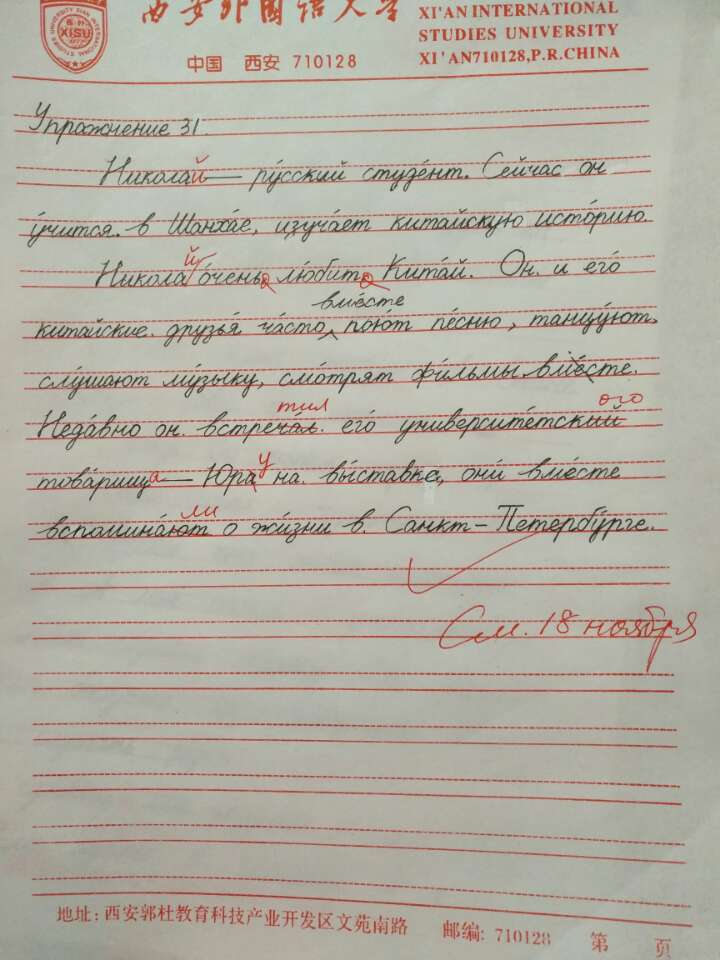 西安外国语大学
XI'AN INTERNATIONAL
STUDIES UNIVERSITY
中国 西安 710128
XI'AN710128,P.R.CHINA
XISU
Упражнение 31.
Николай — ру́сский студе́нт. Сейчас он
у́чится в Шанха́е, изуча́ет китайскую исто́рию.
й
Никола о́чень лю́бит Кита́й. Он и его́
вме́сте
китайские друзья́ ча́сто пою́т пе́сню, танцу́ют,
слу́шают му́зыку, смо́трят фи́льмы вме́сте.
тил ого
Неда́вно он встреча́л его́ университе́тский
товарища — Юра у на вы́ставке, они́ вме́сте
ли
вспомина́ют о жи́зни в Санкт-Петербу́рге.
См. 18 ноября
地址: 西安郭杜教育科技产业开发区文苑南路 邮编: 710128 第 页